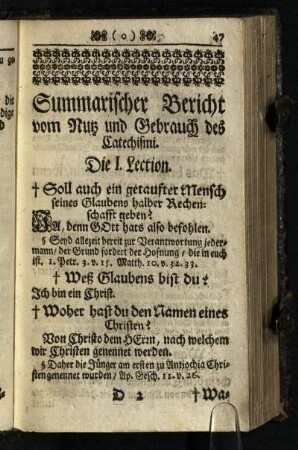 ( o ) 47
Summarischer Bericht
vom Nutz und Gebrauch des
Catechismi.
Die I. Lection.
† Soll auch ein getaufter Mensch
seines Glaubens halber Rechen-
schafft geben?
JA, denn GOtt hats also befohlen.
§ Seyd allezeit bereit zur Verantwortung jeder-
mann / der Grund fordert der Hofnung / die in euch
ist. 1. Petr. 3. v. 15. Matth. 10. v. 32. 33.
† Weß Glaubens bist du?
Ich bin ein Christ.
† Woher hast du den Namen eines
Christen?
Von Christo dem HErrn, nach welchem
wir Christen genennet werden.
§ Daher die Jünger am ersten zu Antiochia Chri-
sten genennet wurden / Ap. Gesch. 11. v. 26.
D 2 † Wa-